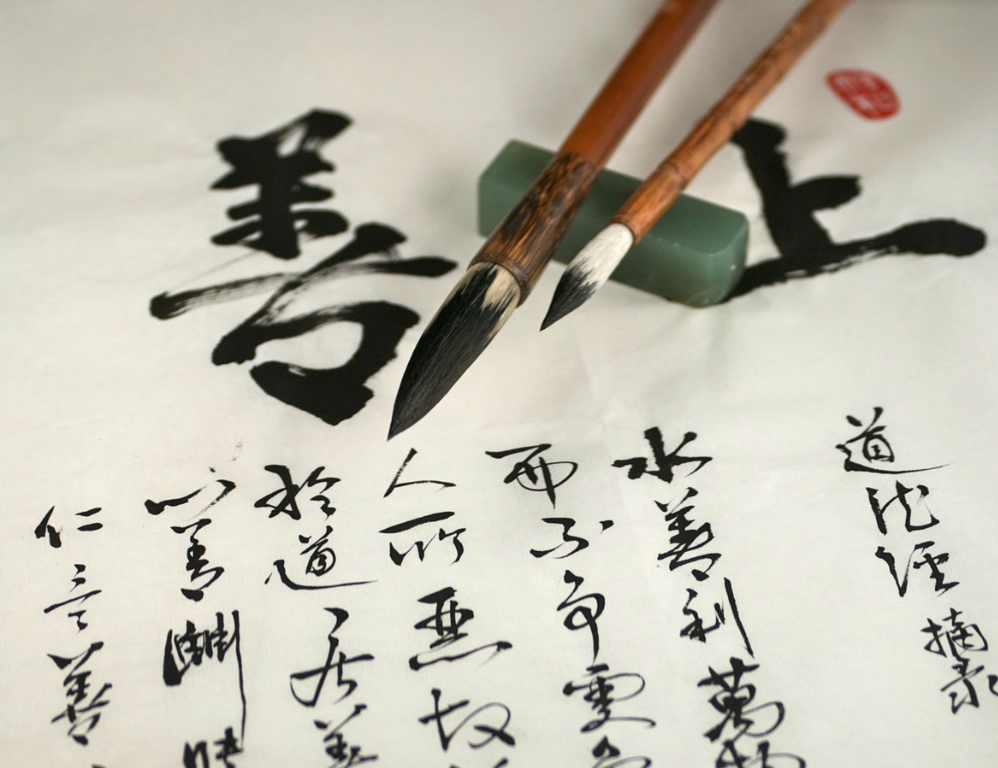 上善
道德經摘录
水善利萬物
而不争處
人所惡故
於道居善
心善淵
仁言善